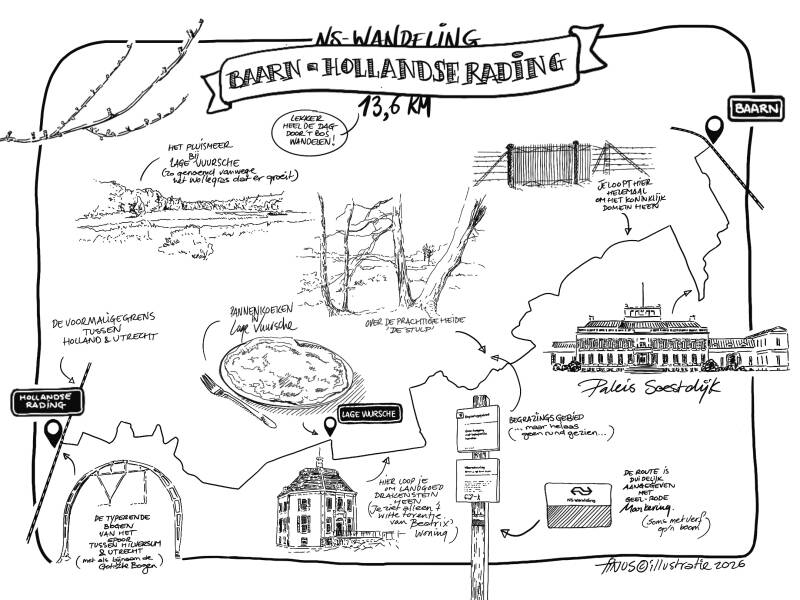 NS-WANDELING
BAARN = HOLLANDSE RADING
13,6 KM
BAARN
LEKKER
HEEL DE DAG
DOOR 'T BOS
WANDELEN!
HET PLUISMEER
BIJ
LAGE VUURSCHE
(zo genoemd vanwege
het Wollegras dat er groeit)
JE LOOPT HIER
HELEMAAL
OM HET KONINKLIJK
DOMEIN HEEN
DE VOORMALIGE GRENS
TUSSEN
HOLLAND & UTRECHT
PANNENKOEKEN
IN
Lage Vuursche
OVER DE PRACHTIGE HEIDE
'DE STULP'
Paleis Soestdijk
HOLLANDSE
RADING
LAGE VUURSCHE
BEGRAZINGSGEBIED
(... maar helaas
geen rund gezien...)
HIER LOOP JE
OM LANDGOED
DRAKENSTEIN
HEEN
(Je ziet alleen 't
witte torentje
van Beatrix'
woning)
DE TYPERENDE
BOGEN
VAN HET
SPOOR
TUSSEN HILVERSUM
& UTRECHT
(met als bijnaam de
Gotische Bogen)
NS-Wandeling
DE ROUTE IS
DUIDELIJK
AANGEGEVEN
MET
GEEL-RODE
Markering.
(Soms met verf
op 'n boom)
©illustratie 2026